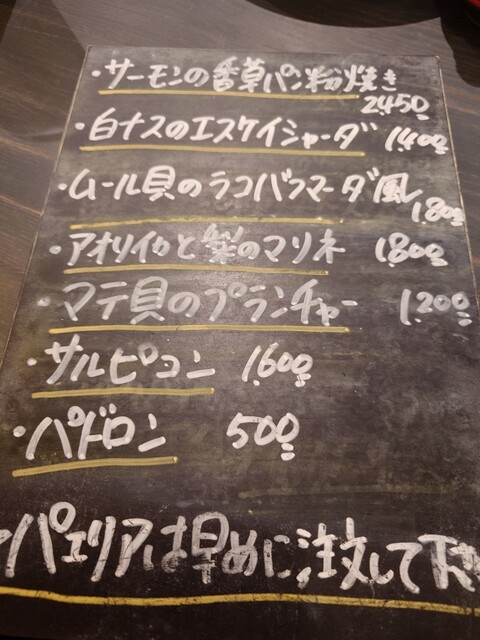 ・サーモンの香草パン粉焼き
2450
・白ナスのエスケイシャーダ 1400
・ムール貝のラコバラマーダ風
1800
・アオリイカと梨のマリネ 1800
・マテ貝のプランチャー 1200
・サルピコン 1600
・パドロン 500
パエリアは早めに注文して下さ